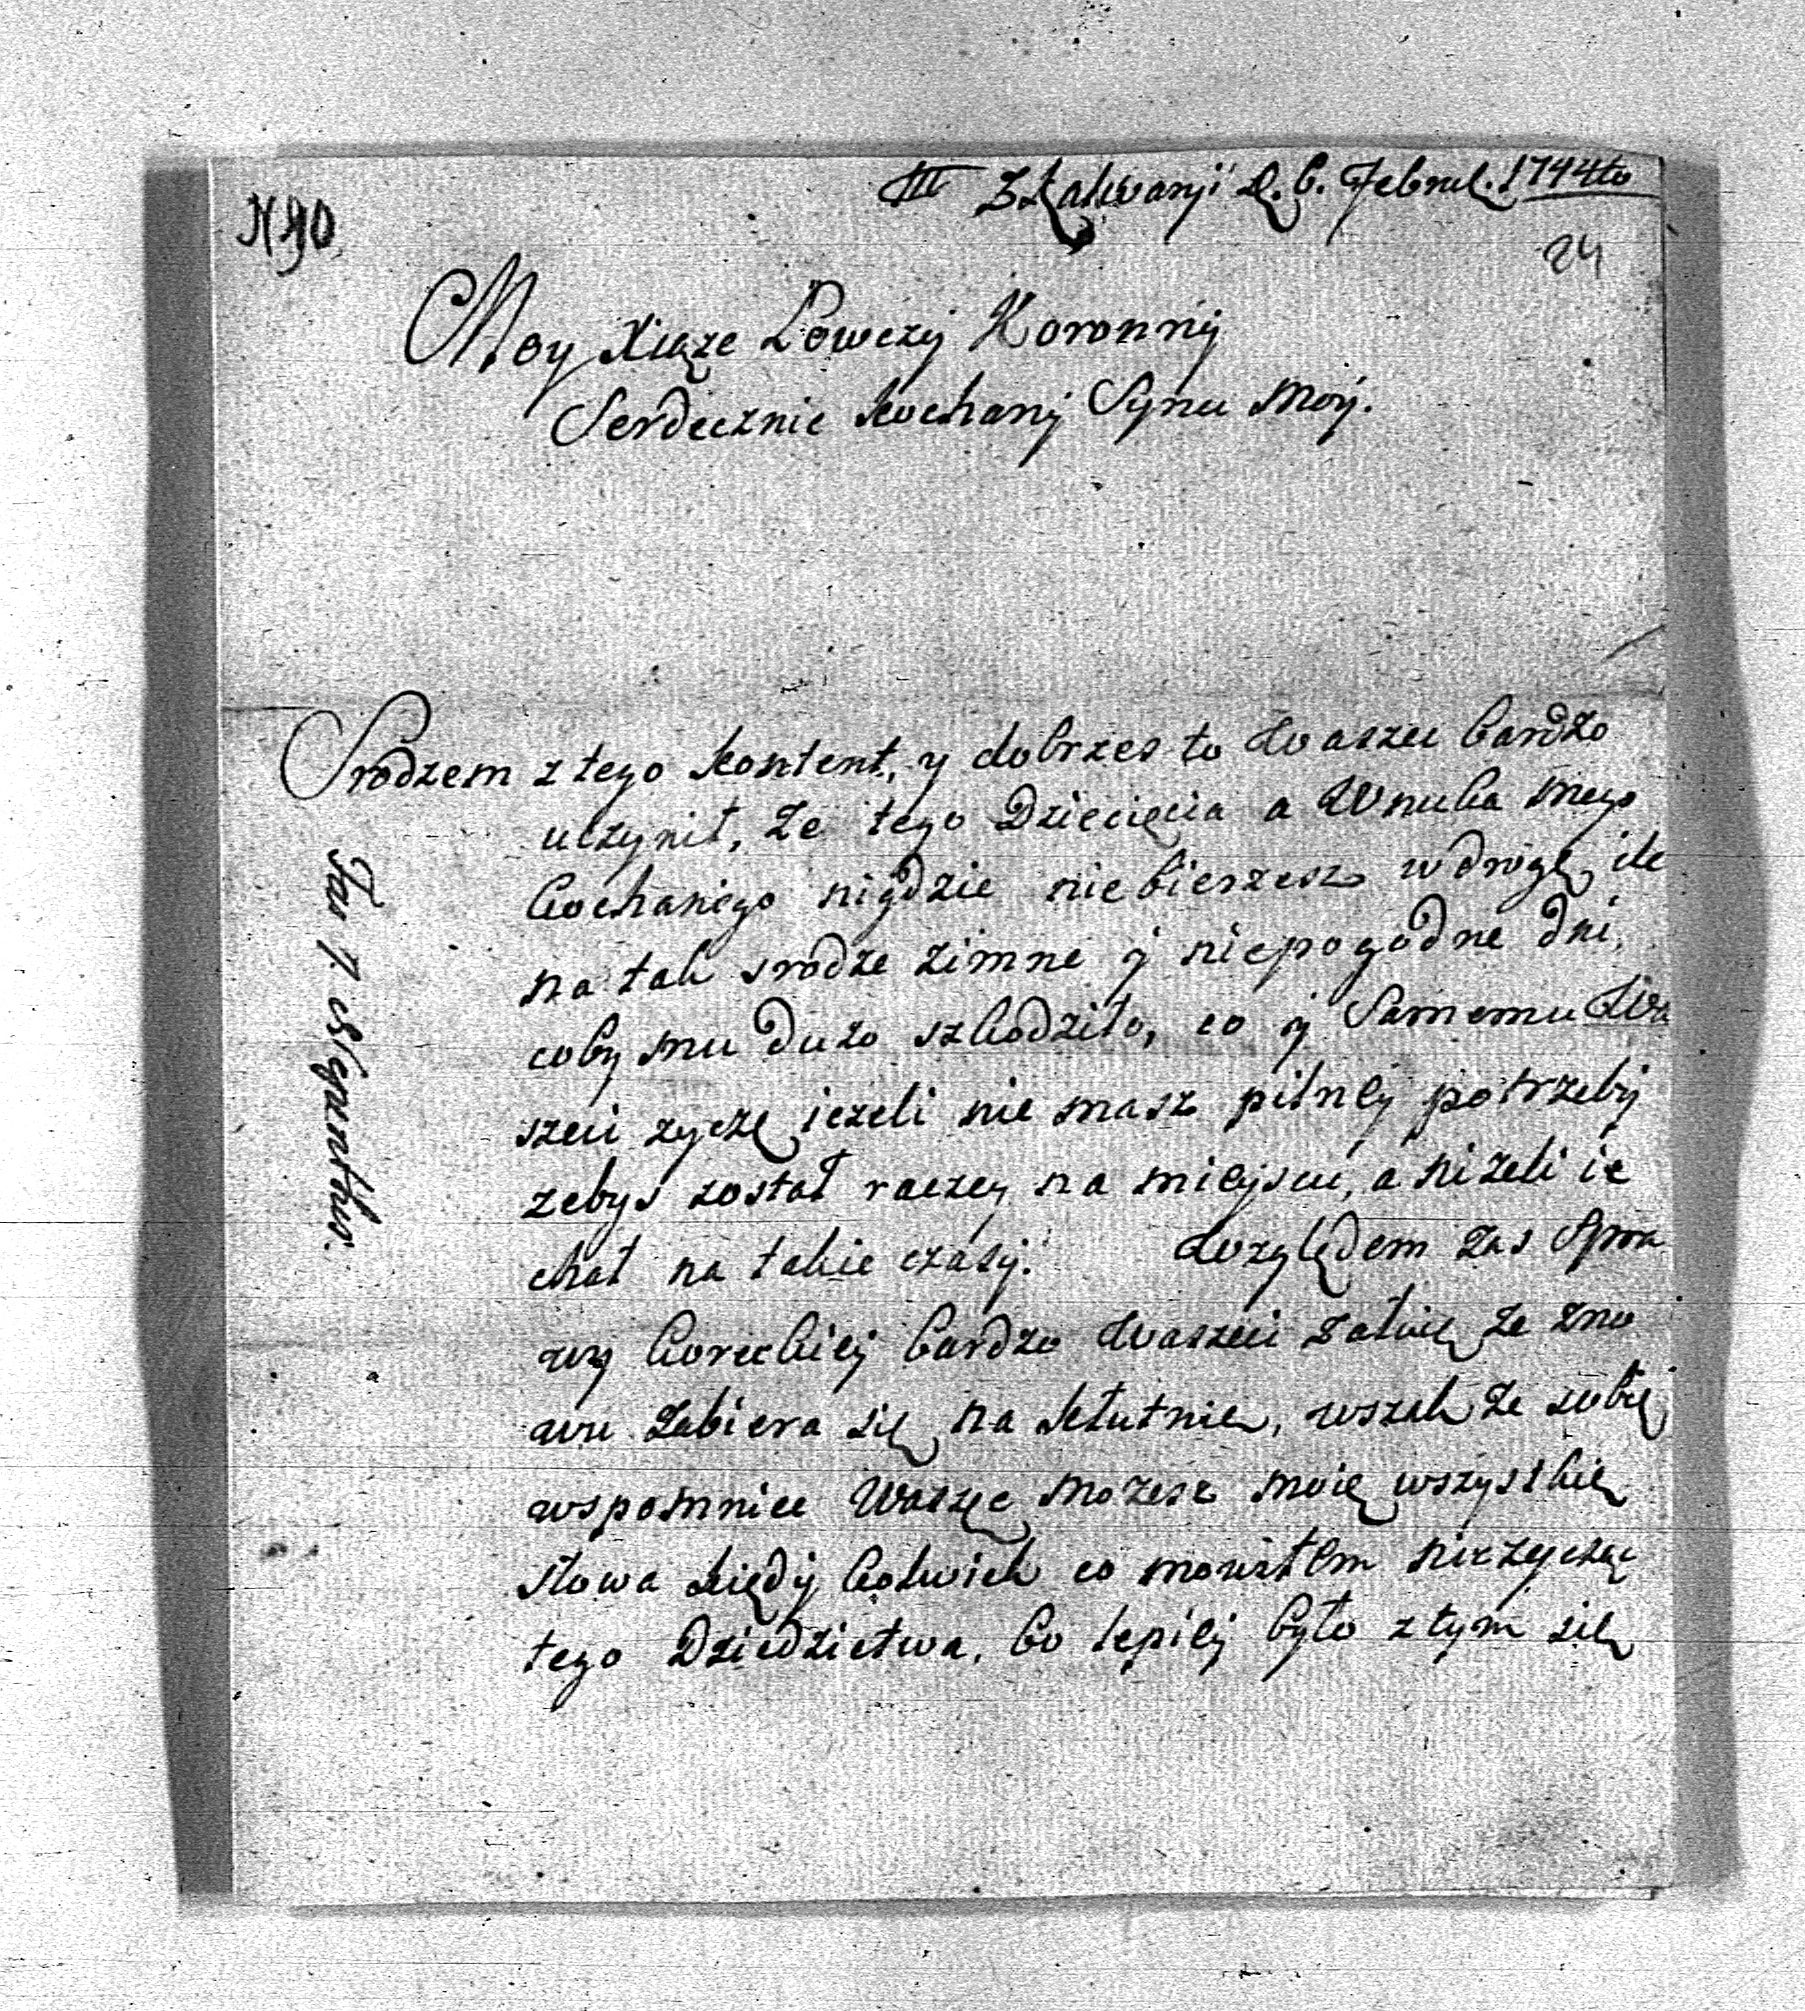 Z Kalwaryi D. 6. Februl. 1744to
N 90
24
Moy Xiąze Łowczy Koronny
Serdecznie kochany Synu Moy.
Srodzem z tego kontent, y dobrzes to Waszec bardzo
uczynił, że tego Dziecięcia a Wnuka mego
kochanego nigdzie niebierzesz w drogę ile
na tak srodze zimne y niepogodne dni,
coby mu dużo szkodziło, co y Samemu Wa
szeci zyczę jeżeli nie masz pilney potrzeby
żebys został raczey na mieyscu, aniżeli ie
chał na takie czasy. Względem zas Spra
wy koreckiey bardzo Waszeci żałuię że zno
wu zabiera się na kłutnie, wszak że sobie
wspomniec Waszec możesz moie wszystkie
słowa kiedy kolwiek co mowiłem nieżycząc
tego Dziedzictwa, bo lepiey było z tym się